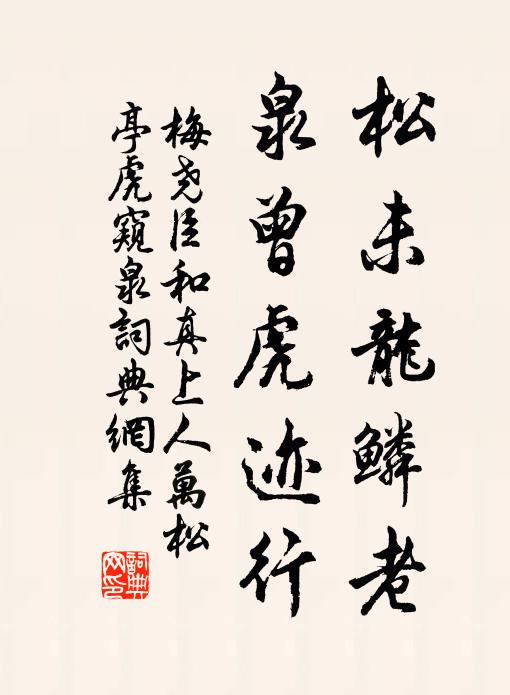 松未龍鱗老
泉曾虎迹行
梅堯臣和真上人萬松
亭虎窺泉詞典網集
詞典
网印